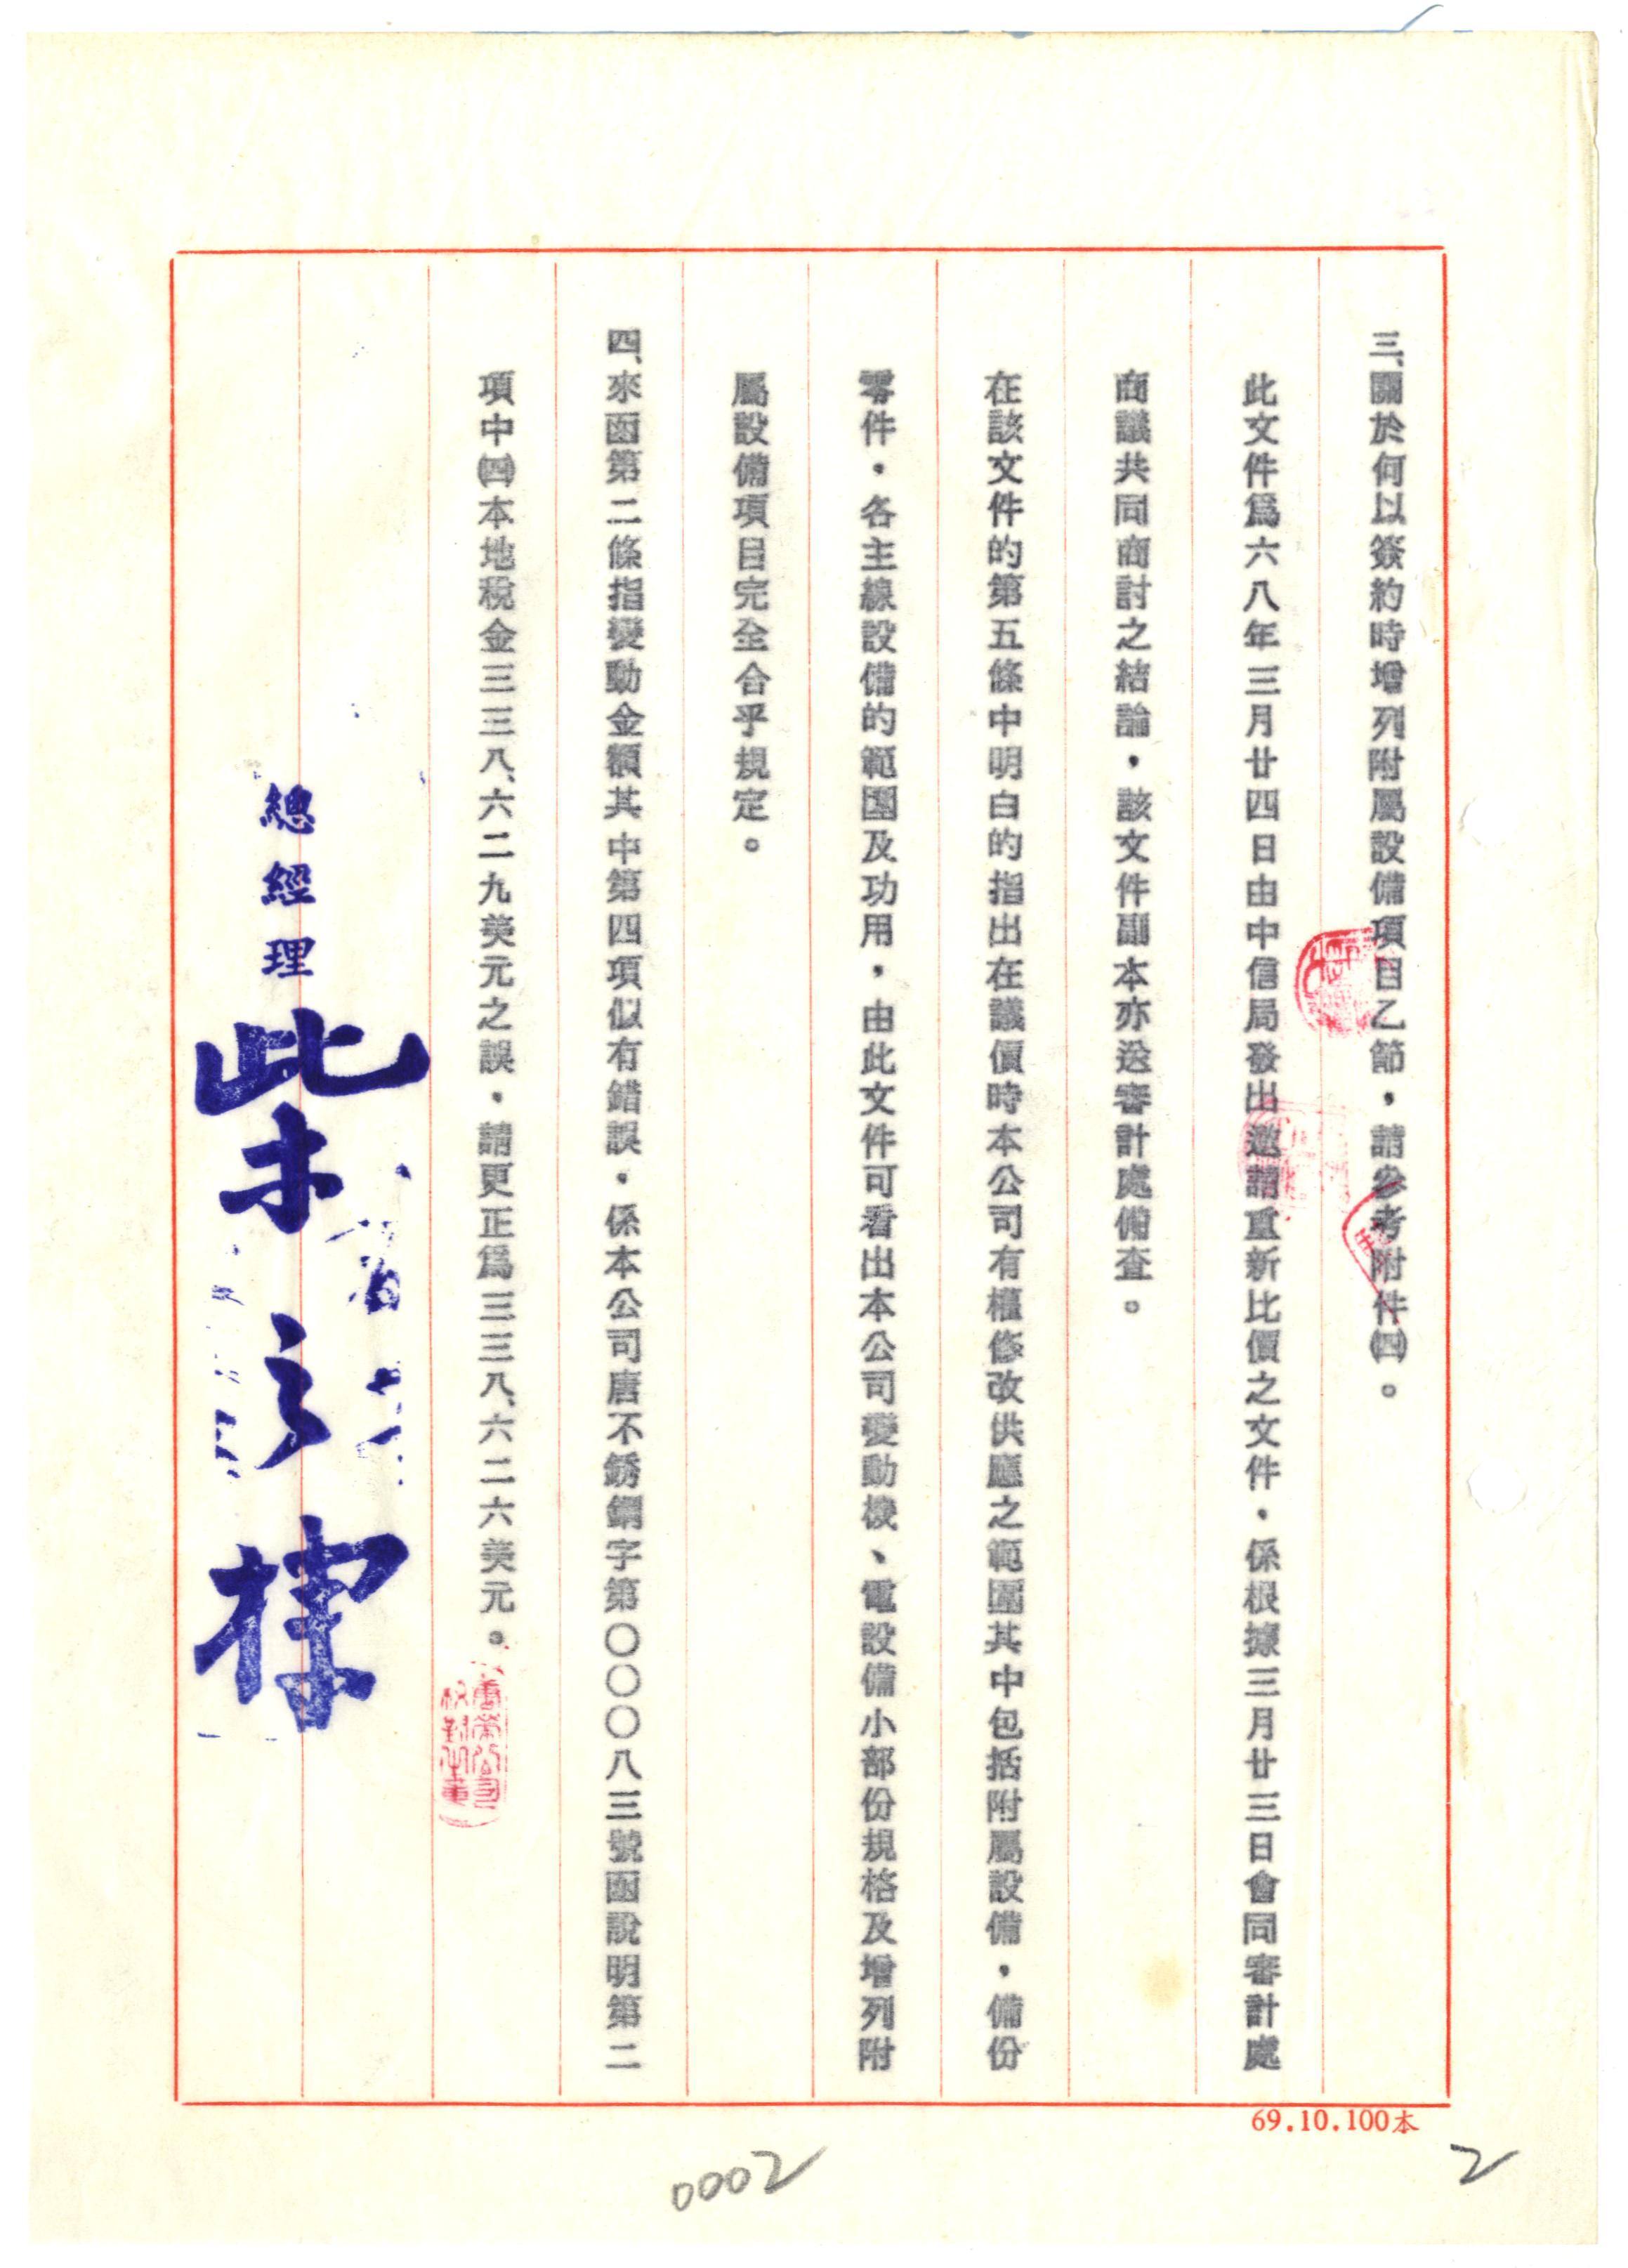 三、關於何以簽約時增列附屬設備項目乙節，請參考附件㈣。
此文件爲六八年三月廿四日由中信局發出邀請重新比價之文件，係根據三月廿三日會同審計處
商議共同商討之結論，該文件副本亦送審計處備查。
在該文件的第五條中明白的指出在議價時本公司有權修改供應之範圍其中包括附屬設備，備份
零件，各主線設備的範圍及功用，由此文件可看出本公司變動機、電設備小部份規格及增列附
屬設備項目完全合乎規定。
四、來函第二條指變動金額其中第四項似有錯誤，係本公司唐不銹鋼字第〇〇〇八三號函說明第二
項中㈣本地稅金三三八、六二九美元之誤，請更正爲三三八、六二六美元。
總經理
唐榮公司
校對之章
69.10.100本
0002
2